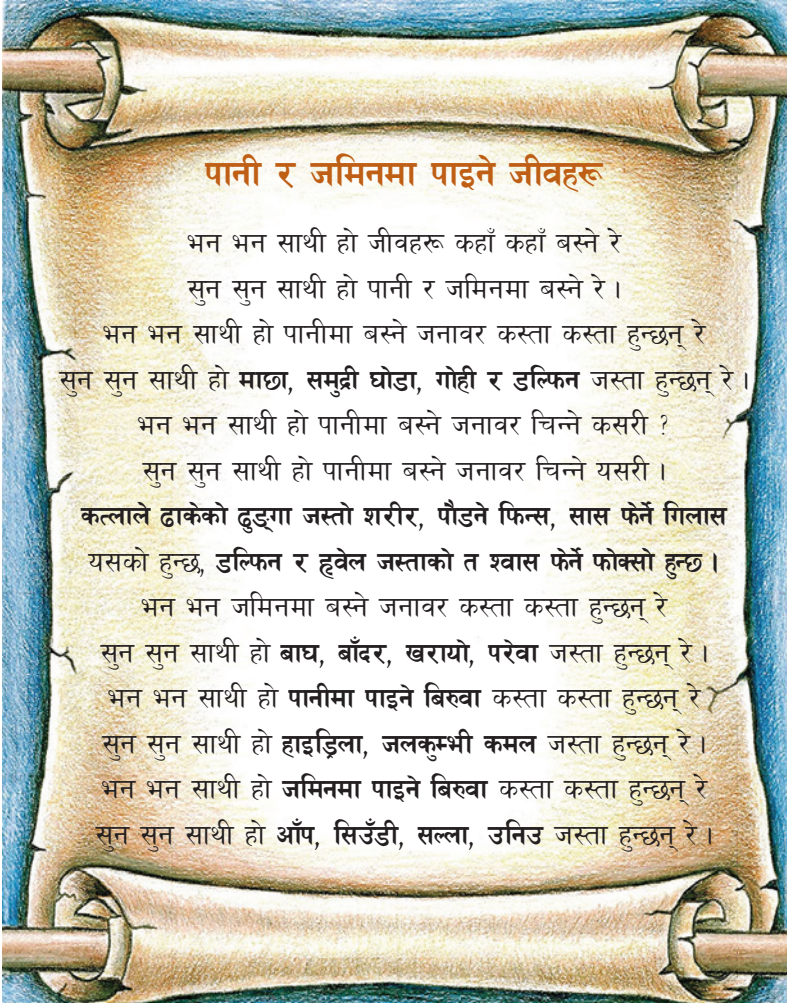 पानी र जमिनमा पाइने जीवहरू
भन भन साथी हो जीवहरू कहाँ कहाँ बस्ने रे
सुन सुन साथी हो पानी र जमिनमा बस्ने रे ।
भन भन साथी हो पानीमा बस्ने जनावर कस्ता कस्ता हुन्छन् रे
सुन सुन साथी हो माछा, समुद्री घोडा, गोही र डल्फिन जस्ता हुन्छन् रे ।
भन भन साथी हो पानीमा बस्ने जनावर चिन्ने कसरी ?
सुन सुन साथी हो पानीमा बस्ने जनावर चिन्ने यसरी ।
कत्लाले ढाकेको ढुङ्गा जस्तो शरीर, पौडने फिन्स, सास फेर्ने गिलास
यसको हुन्छ, डल्फिन र ह्वेल जस्ताको त श्वास फेर्ने फोक्सो हुन्छ ।
भन भन जमिनमा बस्ने जनावर कस्ता कस्ता हुन्छन् रे
सुन सुन साथी हो बाघ, बाँदर, खरायो, परेवा जस्ता हुन्छन् रे ।
भन भन साथी हो पानीमा पाइने बिरुवा कस्ता कस्ता हुन्छन् रे ?
सुन सुन साथी हो हाइड्रिला, जलकुम्भी कमल जस्ता हुन्छन् रे ।
भन भन साथी हो जमिनमा पाइने बिरुवा कस्ता कस्ता हुन्छन् रे
सुन सुन साथी हो आँप, सिउँडी, सल्ला, उनिउ जस्ता हुन्छन् रे ।